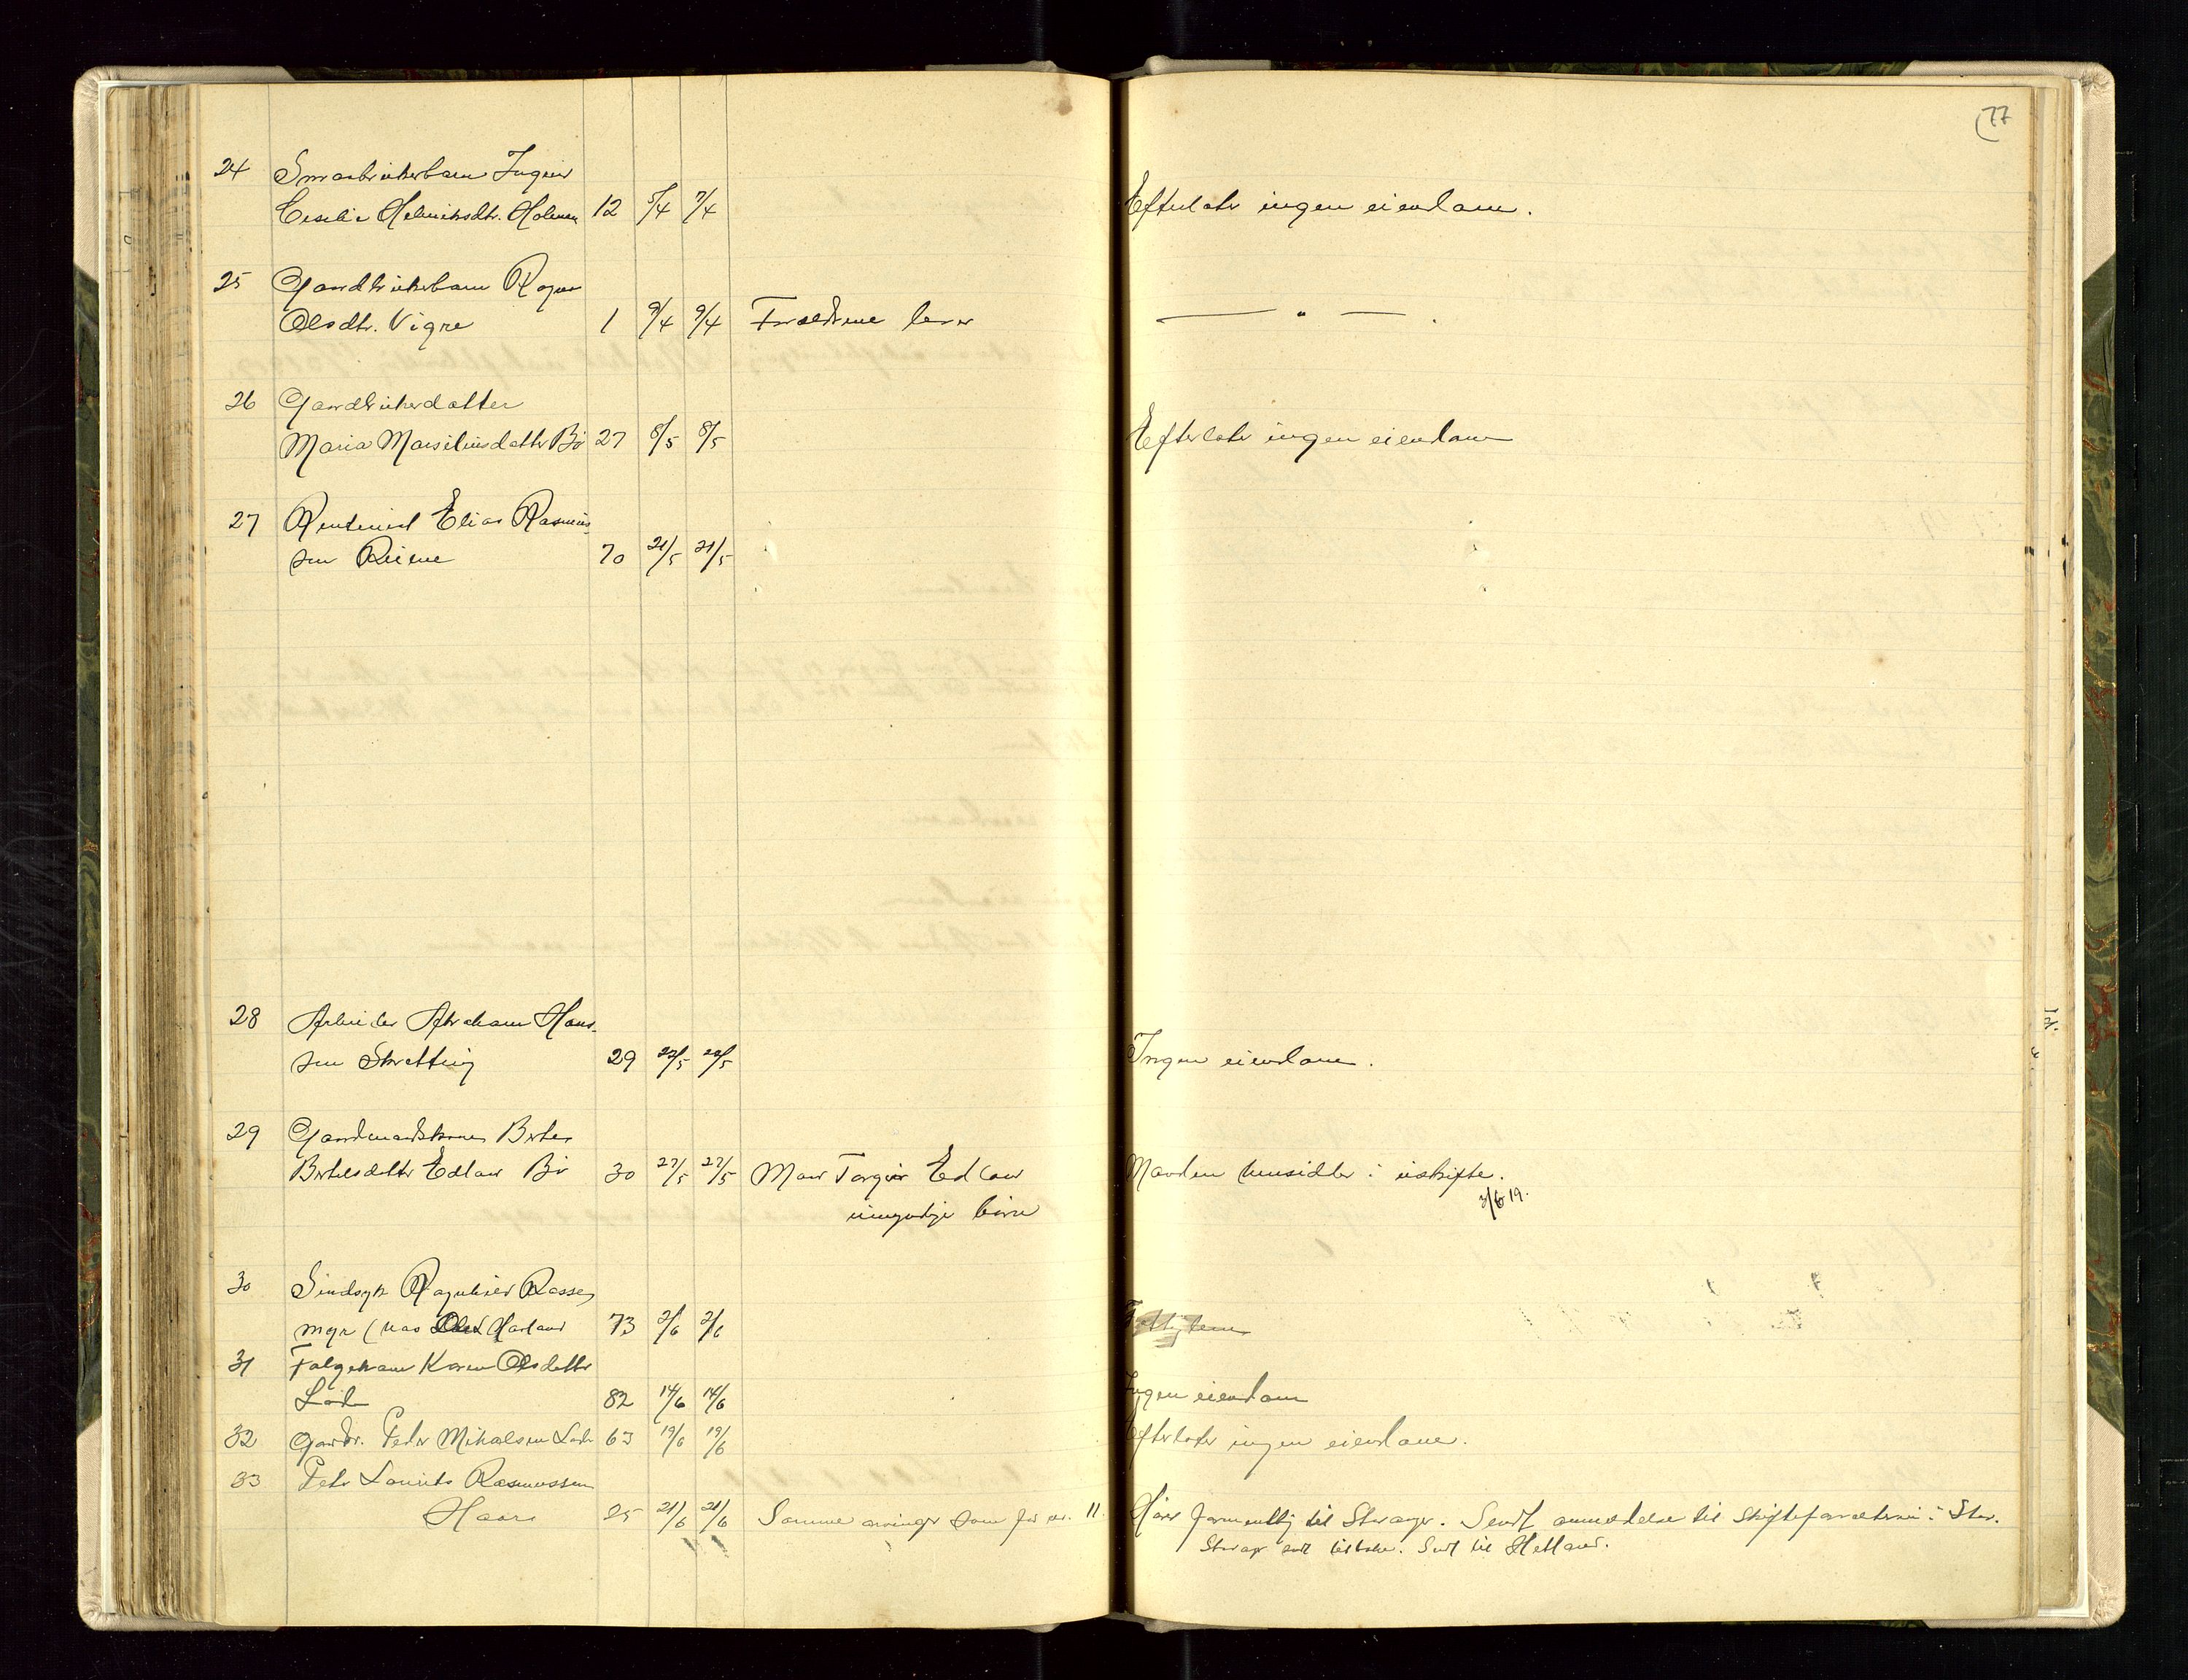 77
24 Smaabrukerbarn Inger
Cecilie Helmiksdtr. Holmen 12 5/4 7/4 Efterlater ingen eiendom.
25 Gaardbrukerbarn Ragna
Olsdtr. Vigre 1 9/4 9/4 Forældrene lever — " —.
26 Gaardbrukerdatter
Maria Marseliusdatter Bø 27 8/5 8/5 Efterlater ingen eiendom
27 Rentenist Elias Rasmus-
sen Reime 70 21/5 21/5
28 Arbeider Abraham Hans-
sen Skretting 29 22/5 22/5 Ingen eiendom.
29 Gaardmandskone Berta
Bertelsdatter Edland Bø 30 27/5 27/5 Man Torger Edland Manden hensidder i uskifte.
umyndige børn 3/6 19.
30 Sindsyk Ragnhild Rasse,
myr (hos Harland 73 2/6 2/6 Fattiglem
31 Følgekone Karen Olsdatter
Løde 82 14/6 14/6 Ingen eiendom
32 Gardbr. Peder Mikalsen Løde 63 19/6 19/6 Efterlater ingen eiendom.
33 Peder Laurits Rasmussen
Haars 25 21/6 21/6 Samme arvinger som for nr. 11. Hører formentlig til Stavanger. Sendt anmeldelse til Skifteforvalteren i Stav.
Stavager sendt tilbake. Sendt til Hetland.